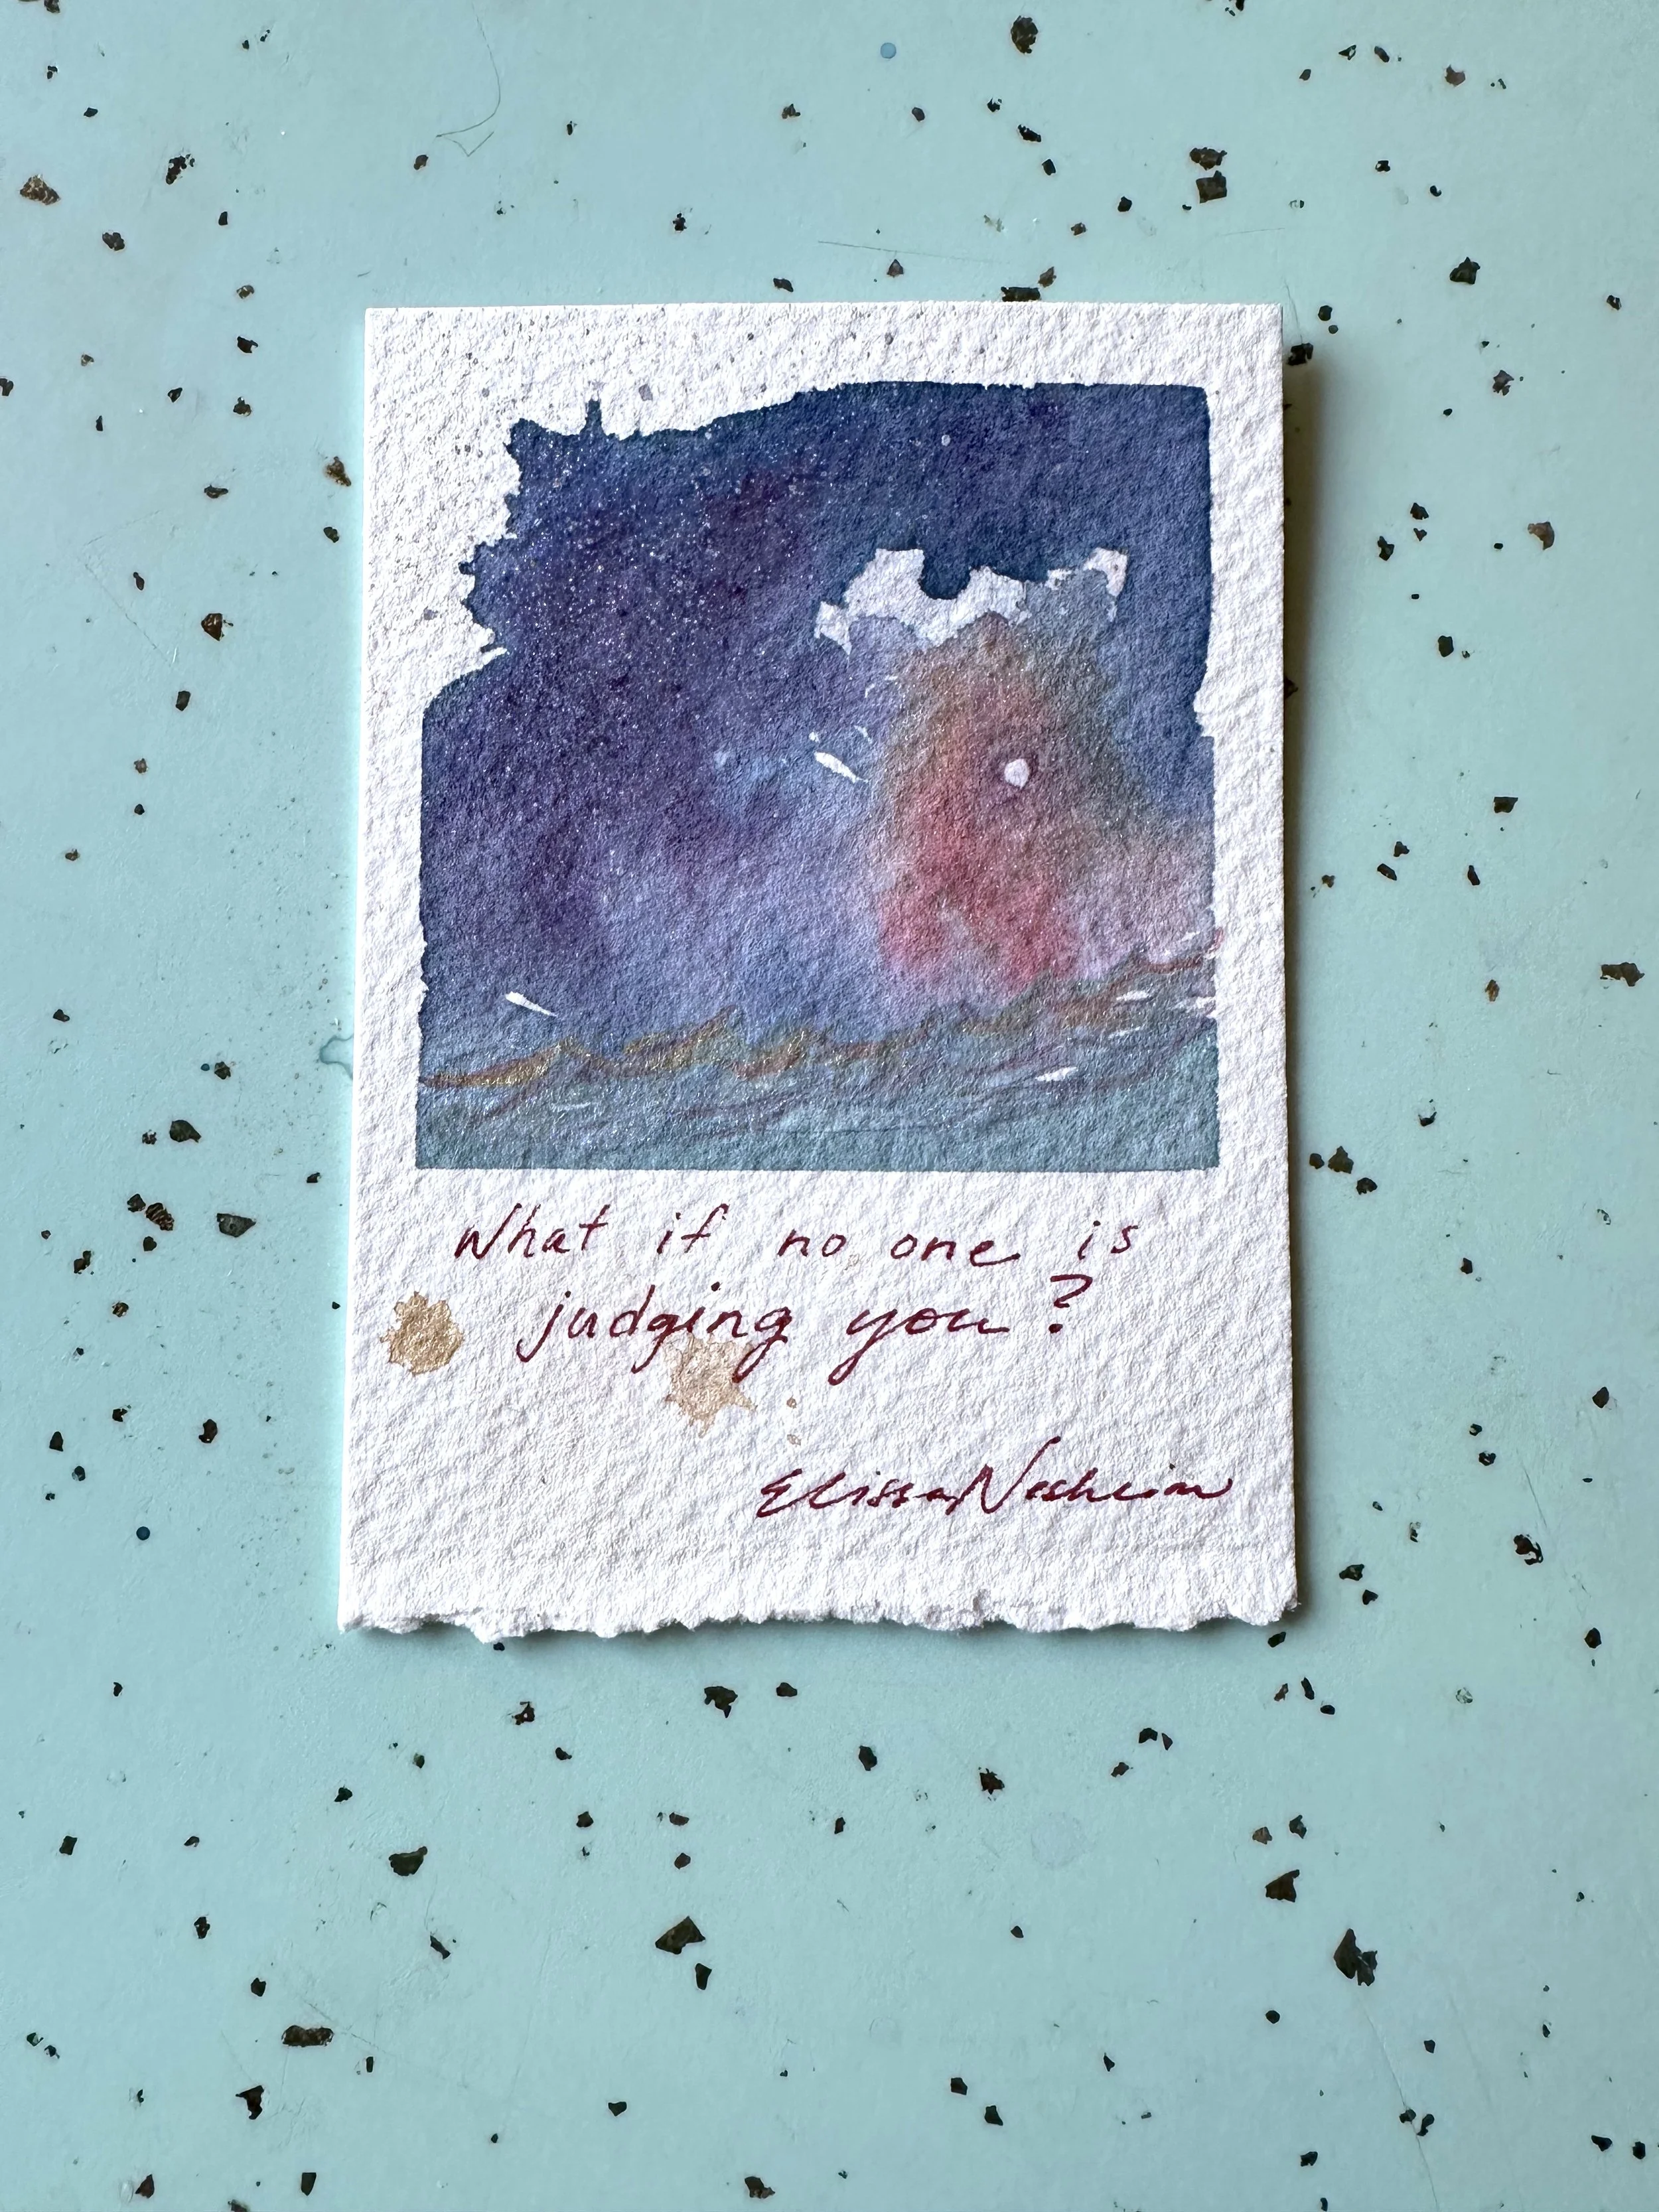 What if no one is
judging you?
Elissa Nesheim